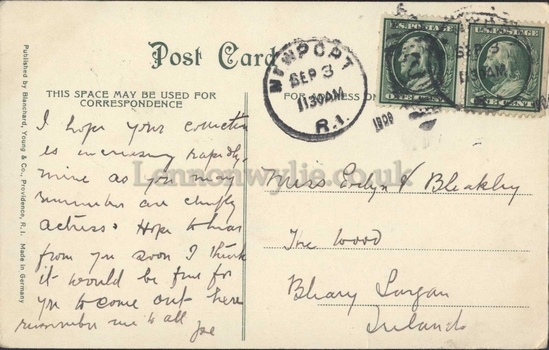 Post Card
THIS SPACE MAY BE USED FOR
CORRESPONDENCE
NEWPORT
SEP 3
11 30 AM
R.I.
U.S. POSTAGE
U.S. POSTAGE
SEP 3
11 30 AM
1909
Published by Blanchard, Young & Co., Providence, R. I. Made in Germany
Lennonwylie.co.uk
I hope your
is increasing rapidly.
mine as you may
remember are chiefly
actress. Hope to hear
from you soon I think
it would be fine for
you to come out here
remember me to all Joe
Miss Evelyn V Bleakley
The Wood
Bleary Lurgan
Ireland